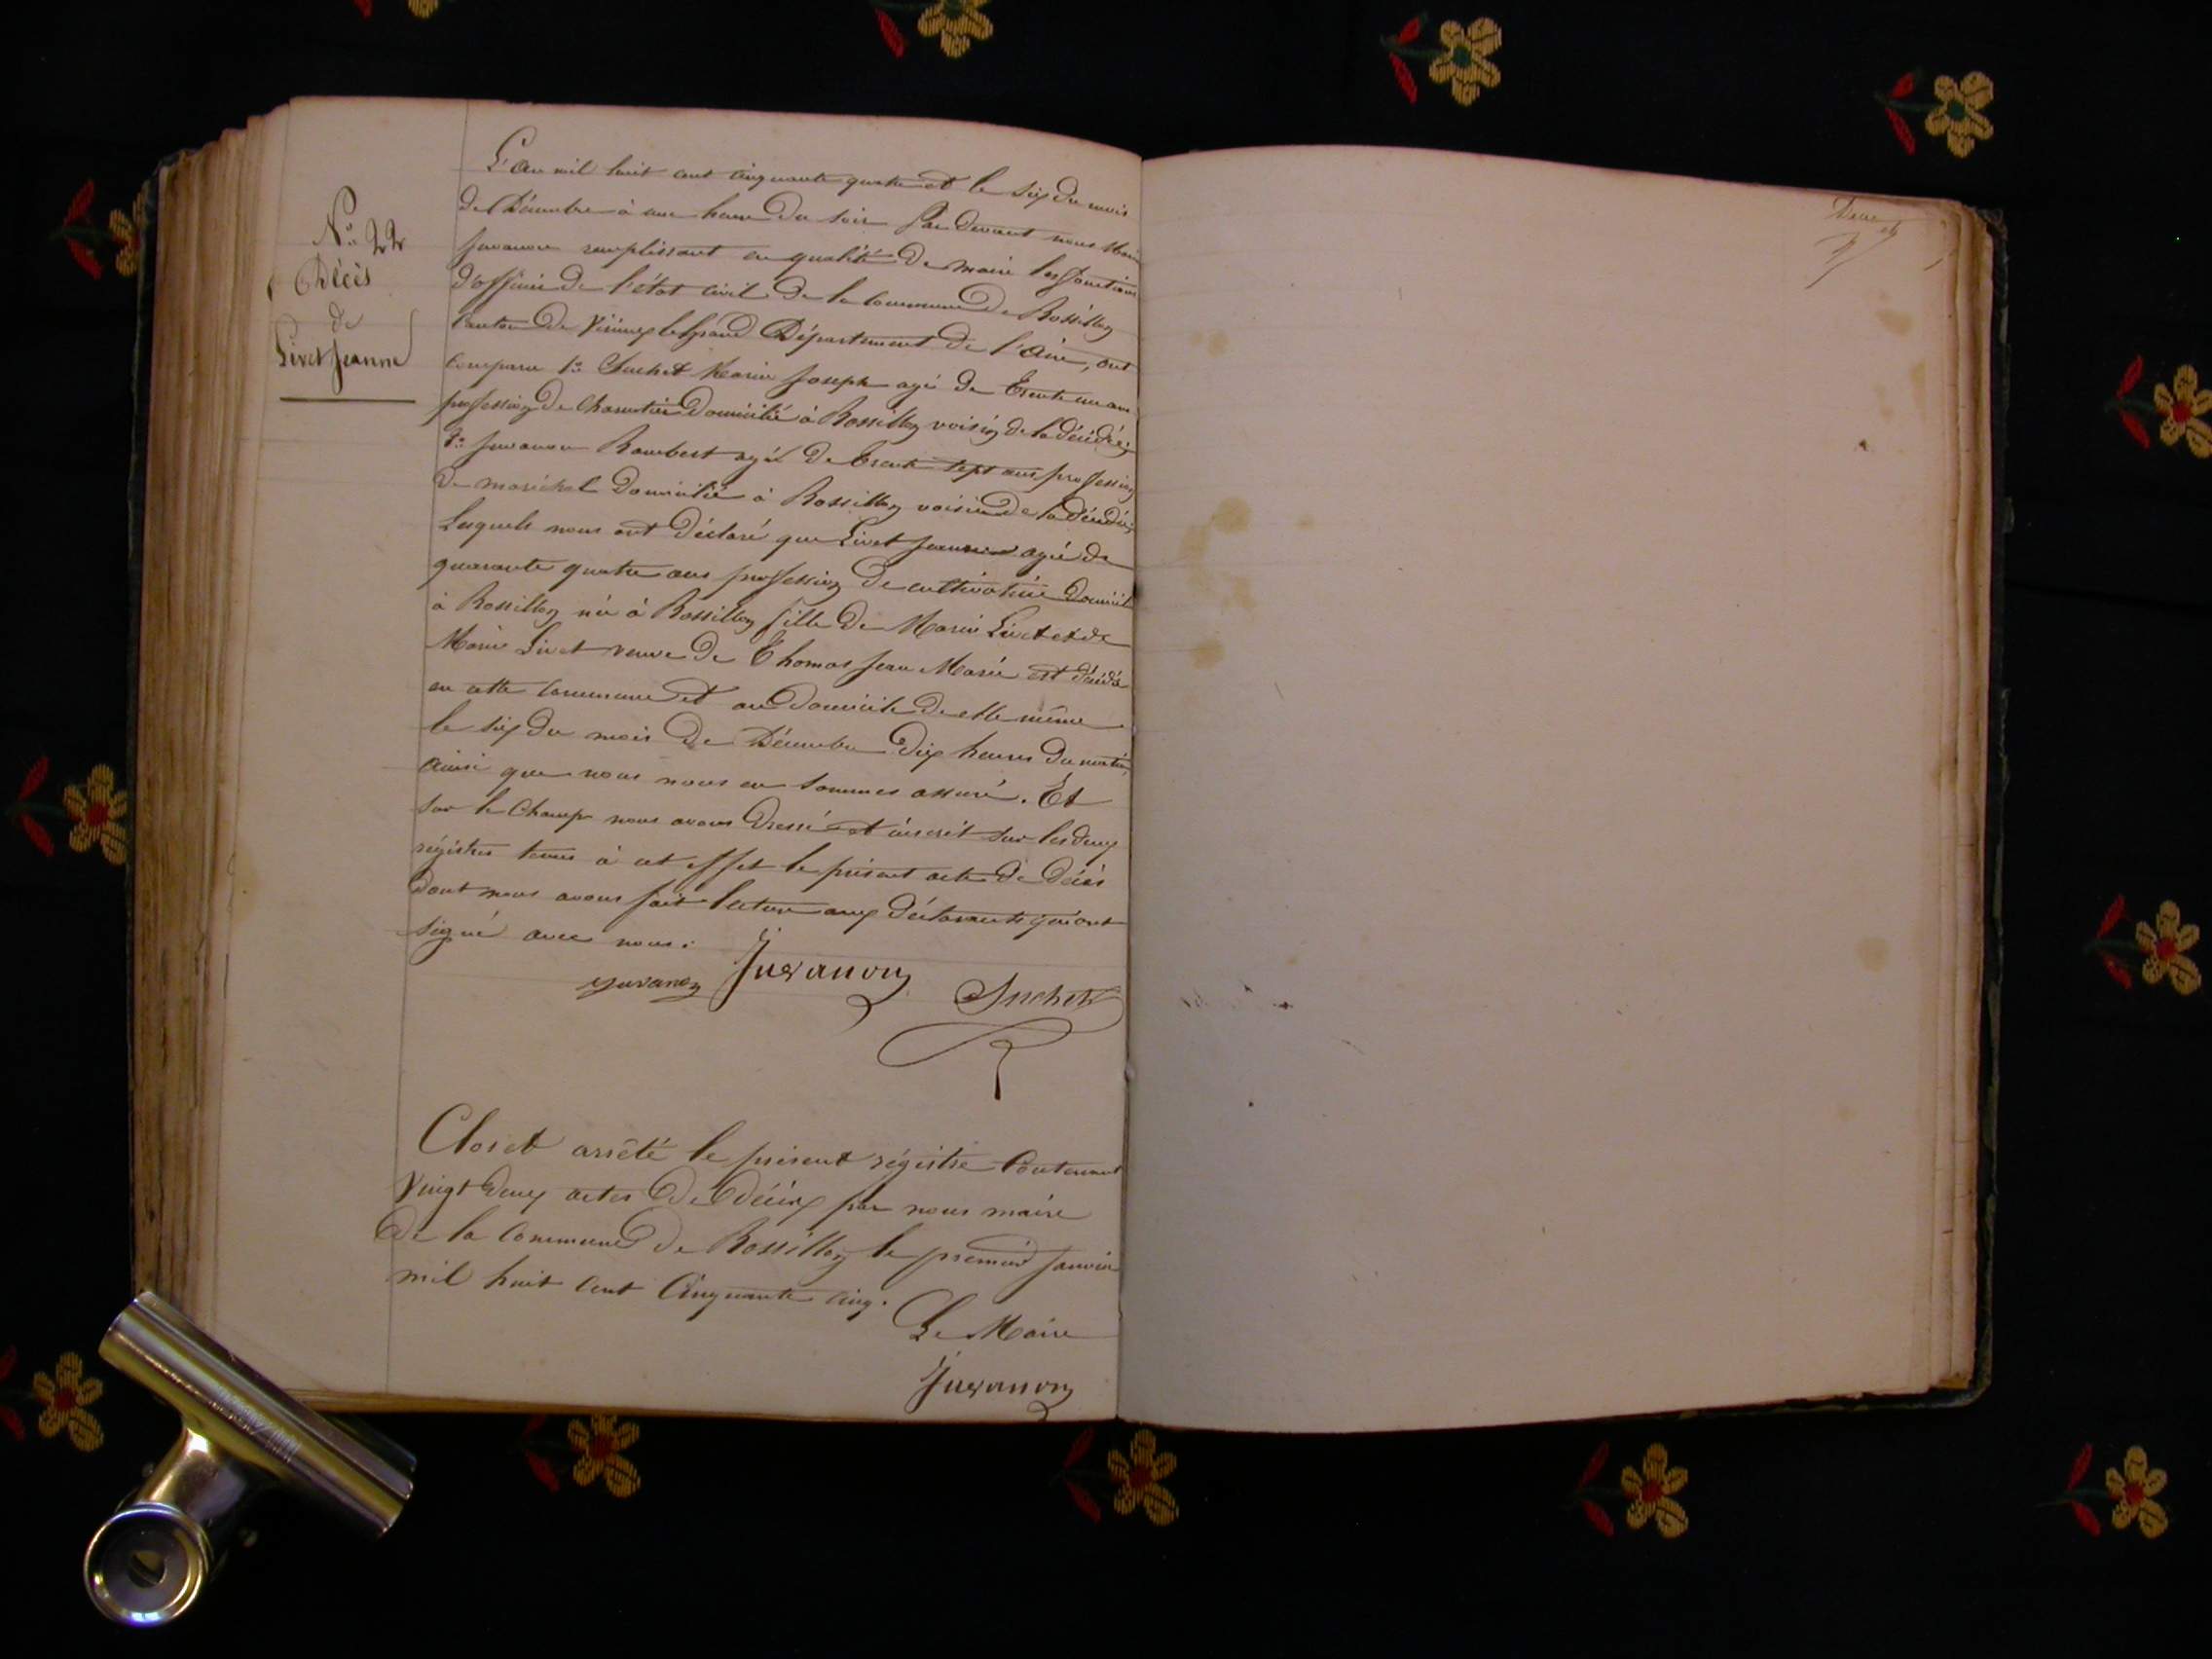 N.o 22
Décès
de
Livet Jeanne
L'an mil huit cent cinquante quatre et le six du mois
de Décembre à une heure du soir Par devant nous Marin
Juvanon remplissant en qualité de maire les fonctions
d'officier de l'état civil de la commune de Rossillon
Canton de Virieu le Grand Département de l'Ain, ont
comparu 1o Suchet Marie Joseph agé de Trente un ans
profession de Charcutier domicilié à Rossillon voisin de la décédée;
2o Juvanon Rambert agé de trente sept ans profession
de maréchal domicilié à Rossillon voisin de la décédée;
Lesquels nous ont déclaré que Livet Jeanne agée de
quarante quatre ans profession de cultivatrice domicilié
à Rossillon née à Rossillon fille de Marin Livet et de
Marie Livet veuve de Thomas Jean Marie est décédée
en cette commune et au domicile de elle même
le six du mois de Décembre dix heures du matin,
ainsi que nous nous en sommes assuré. Et
sur le champ nous avons dressé et inscrit sur les deux
régistres tenus à cet effet le présent acte de décès
Dont nous avons fait lecture aux déclarants qui ont
signé avec nous.
Juvanon Juvanon Suchet
Clos et arrêté le présent régistre Contenant
Vingt deux actes de Décès par nous maire
de la commune de Rossillon le premier Janvier
mil huit cent Cinquante cinq.
Le Maire
Juvanon